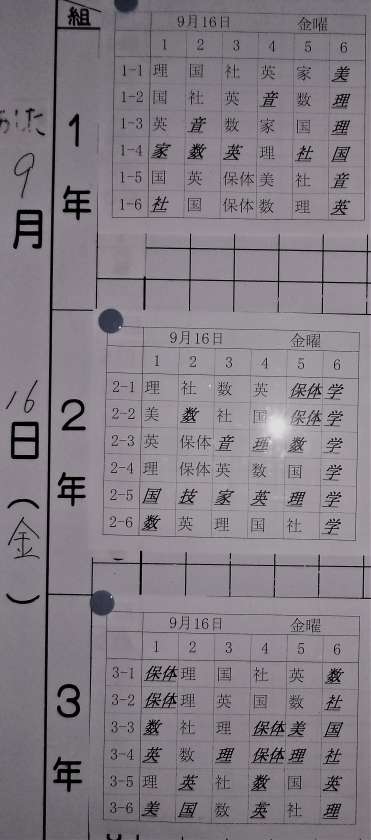 組
あした
9月
16日
(金)
1年
9月16日 金曜
1 2 3 4 5 6
1-1 理 国 社 英 家 美
1-2 国 社 英 音 数 理
1-3 英 音 数 家 国 理
1-4 家 数 英 理 社 国
1-5 国 英 保体 美 社 音
1-6 社 国 保体 数 理 英
2年
9月16日 金曜
1 2 3 4 5 6
2-1 理 社 数 英 保体 学
2-2 美 数 社 国 保体 学
2-3 英 保体 音 理 数 学
2-4 理 保体 英 数 国 学
2-5 国 技 家 英 理 学
2-6 数 英 理 国 社 学
3年
9月16日 金曜
1 2 3 4 5 6
3-1 保体 理 国 社 英 数
3-2 保体 理 英 国 数 社
3-3 数 社 理 保体 美 国
3-4 英 数 理 保体 理 社
3-5 理 英 社 数 国 英
3-6 美 国 数 英 社 理